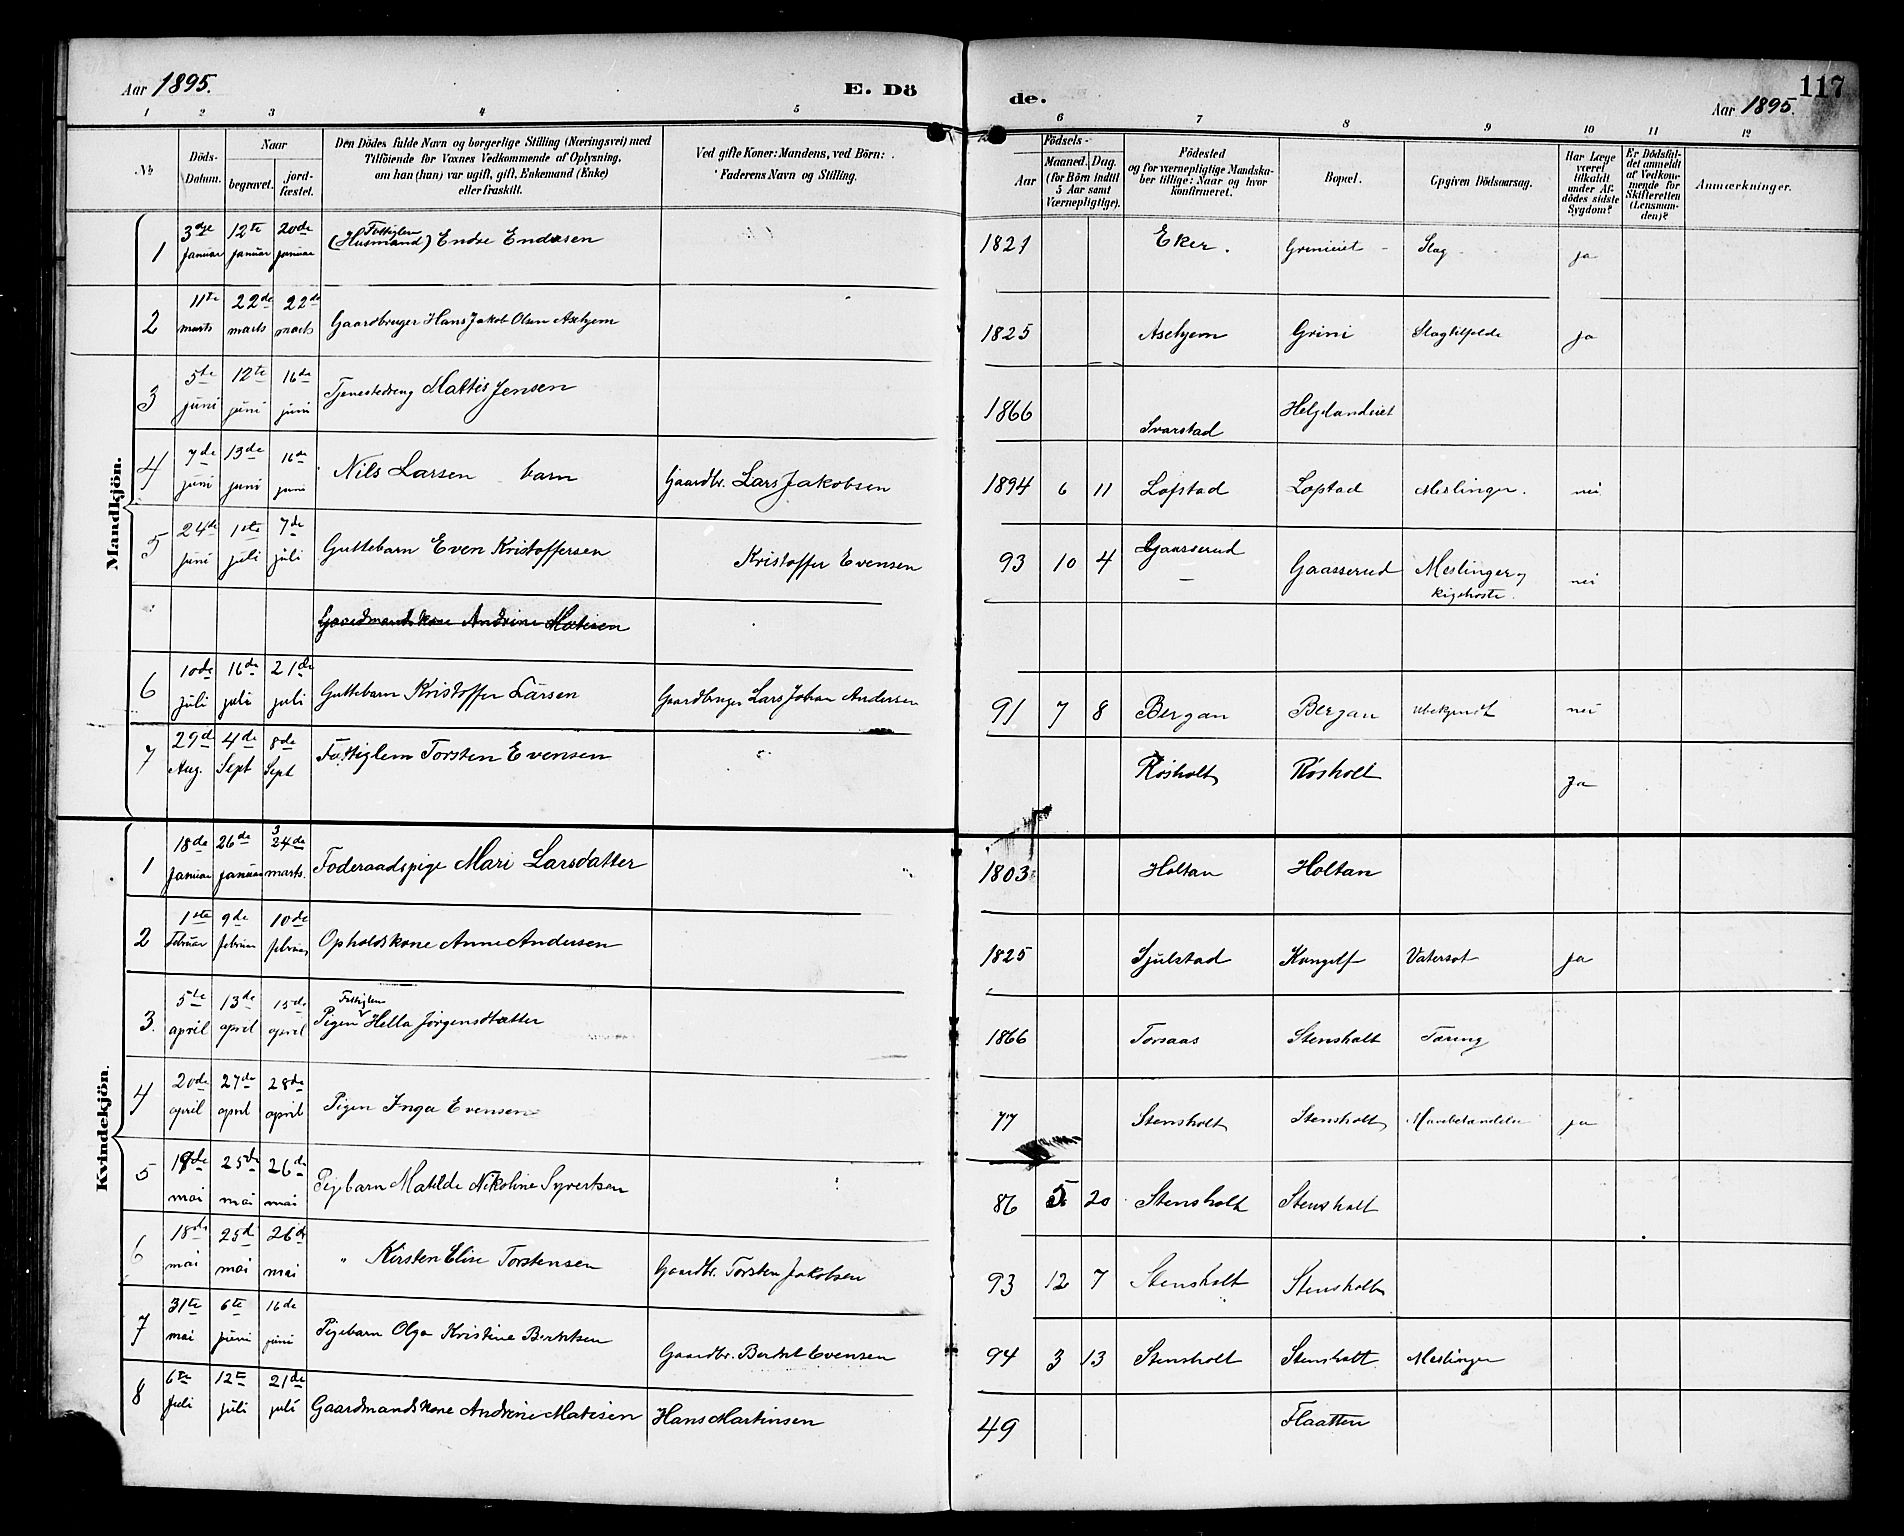 Aar 1895.
E. Dö
de.
Aar 1895.
117
1 2 3 4 5 6 7 8 9 10 11 12
No
Döds-Datum.
Naar
begravet.
jord-fæstet.
Den Dödes fulde Navn og borgerlige Stilling (Næringsvei) med
Tilföiende for Voxnes Vedkommende af Oplysning,
om han (hun) var ugift, gift, Enkemand (Enke)
eller fraskilt.
Ved gifte Koner: Mandens, ved Börn:
Faderens Navn og Stilling.
Födsels-
Aar
Maaned. Dag.
(for Börn indtil
5 Aar samt
Værnepligtige).
Födested
og for værnepligtige Mandska-
ber tillige: Naar og hvor
konfirmeret.
Bopæl.
Opgiven Dödsaarsag.
Har Læge
været
tilkaldt
under Af-
dödes sidste
Sygdom?
Er Dödsfal-
det anmeldt
af Vedkom-
mende for
Skifteretten
(Lensman-
den)?
Anmærkninger.
Mandkjön.
1 3dje januar 12te januar 20de januar Fattiglem (Husmand) Endre Endresen 1821 Eker. Grinieiet Slag ja
2 11te marts 22de marts 22de marts Gaardbruger Hans Jakob Olsen Aschjem 1825 Aschjem Grini Slagtilfelde ja
3 5te juni 12te juni 16de juni Tjenestedreng Mattis Jensen 1866 Svarstad Helgelandeiet
4 7de juni 13de juni 16de juni Nils Larsen barn Gaardbr. Lars Jakobsen 1894 6 11 Lofstad Lofstad Meslinger. nei
5 24de juni 1ste juli 7de juli Guttebarn Even Kristoffersen Kristoffer Evensen 93 10 4 Gaasserud Gaasserud Meslinger og kighoste. nei
Gaardmandskone Andrine Matisen
6 10de juli 16de juli 21de juli Guttebarn Kristoffer Larsen Gaardbruger Lars Johan Andersen 91 7 8 Bergan Bergan ubekjendt nei
7 29de Aug. 4de Sept 8de Sept Fattiglem Torsten Evensen Røsholt Røsholt Ja
Kvindekjön.
1 18de januar 26de januar 24de marts. Føderaadspige Mari Larsdatter 1803 Holtan Holtan
2 1ste Februar 9de februar 10de februar Opholdskone Anne Andersen 1825 Sjulstad Vatersot ja
3. 5te april 13de april 15de april Pigen Fattiglem Hella Jørgensdatter 1866 Torsaas Stensholt Tæring
4 20de april 27de april 28de april Pigen Inga Evensen 77 Stensholt Stensholt ja
5 19de mai 25de mai 26de mai Pigebarn Matilde Nikoline Syvertsen 86 5 20 Stensholt Stensholt
6 18de mai 25de mai 26de mai " Kirsten Elise Torstensen Gaardbr. Torsten Jakobsen 93 12 7 Stensholt Stensholt
7 31te mai 6te juni 16de juni Pigebarn Olga Kristine Berntsen Gaardbr. Berdet Evensen 94 3 13 Stensholt Stensholt Meslinger
8 6te Juli 12te juli 21de juli Gaardmandskone Andrine Matisen Hans Martinsen 49 Flaatten